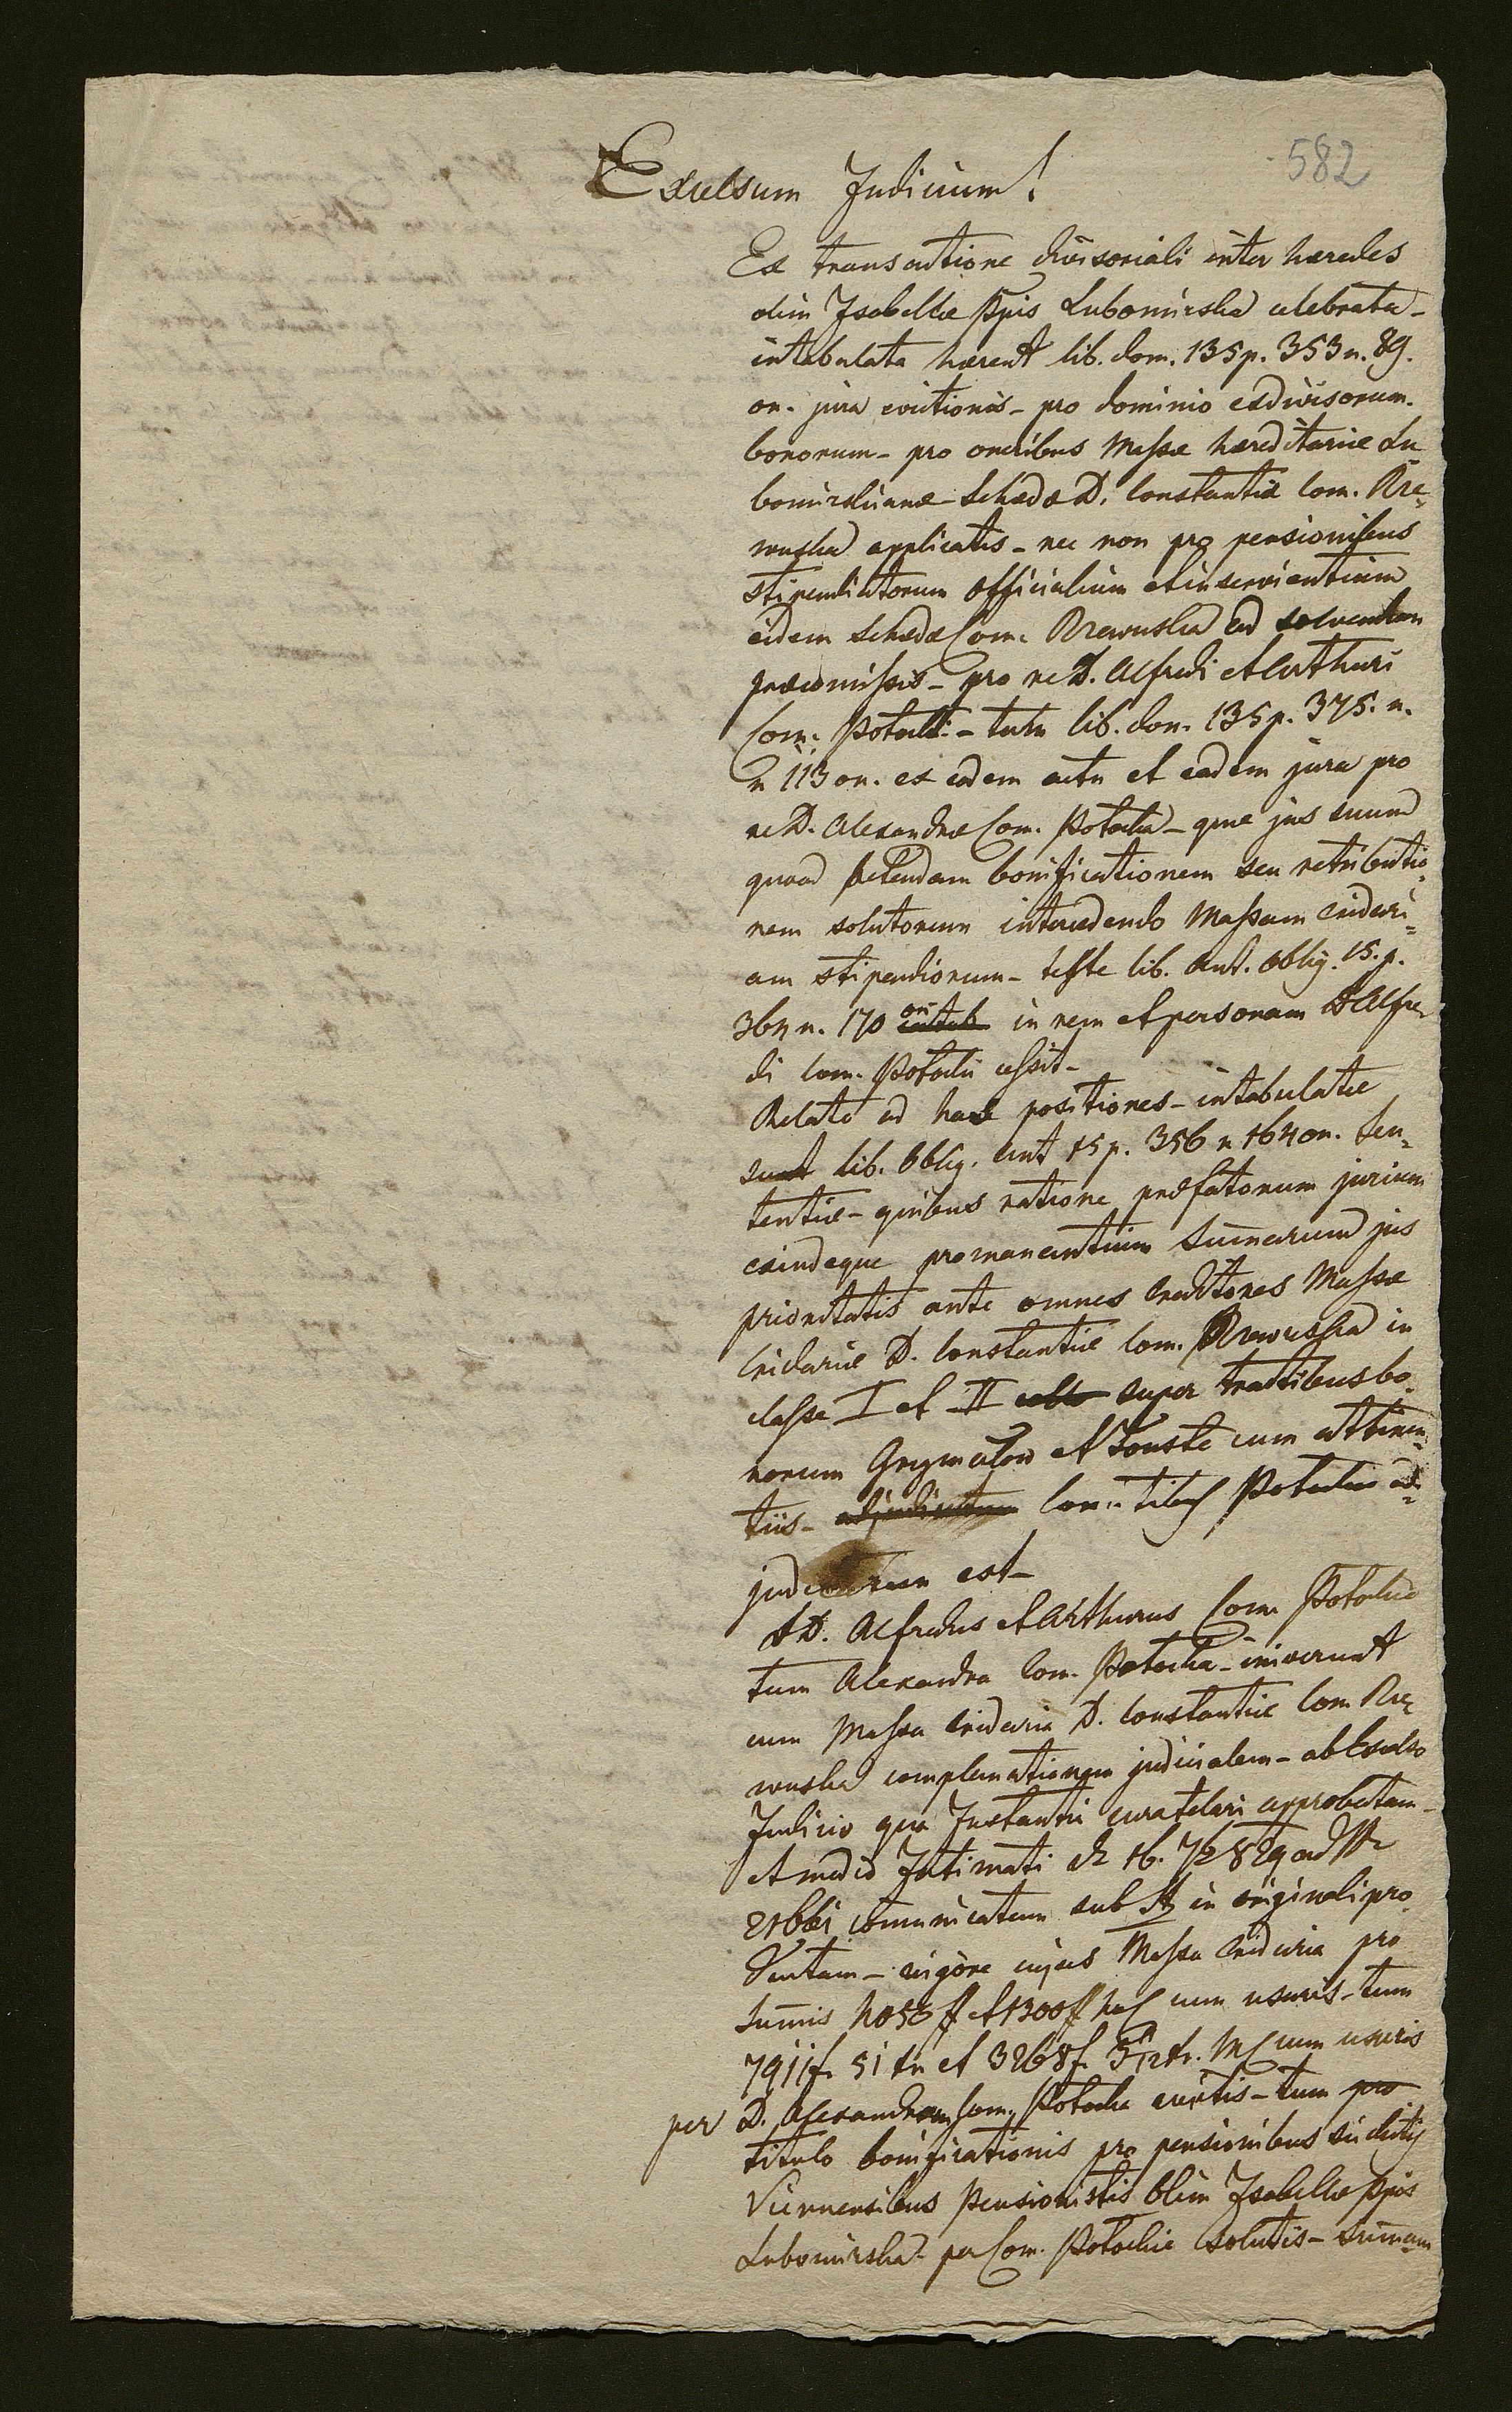 582
Excelsum Judicium!
Ex transactione divisoriali inter hæredes
olim Isabellæ Ppis Lubomirska celebrata -
intabulata hærent lib. dom. 135 p. 353 n. 89.
on. jura evictionis - pro dominio exdivisorum
bonorum - pro oneribus Massæ hæreditariæ Lu=
bomirskianæ Schedæ D. Constantiæ Com. Rze=
wuska applicatis - nec non pro pensionibus
stipendiatorum officialium et inservientium
eidem Schedæ Com. Rzewuska ad solvendum
præcomissis - pro re D. Alfredi et Arthuri
Com. Potocki - tum lib. dom. 135 p. 375. n.
n 113 on. ex eodem actu et eadem jura pro
re D. Alexandræ Com. Potocka - quæ jus suum
quoad petendam bonificationem seu retributio=
nem solutorum intercedendo Massam cridari=
am stipendiorum - teste lib. Ant. oblig. 15. p.
364 n. 170 on in rem et personam D Alfre=
di Com. Potocki cessit -
Relate ad hasce positiones - intabulatæ
sunt lib. Oblig. Ant 15 p. 356 n 164 on. Sen=
tentiæ - quibus ratione præfatorum jurium
exindeque promanantium Summarum jus
prioritatis ante omnes Creditores Massæ
Cridariæ D. Constantiæ Com. Rzewuska in
classe I et II super tractibus bo=
norum Grzymałow et Touste cum attinen=
tiis - adjudicatum Com. Potockie ad=
judicatum est -
DD. Alfredus et Arthurus Com. Potockie
tum Alexandra Com. Potocka - iniverunt
cum Massa Cridaria D. Constantiæ Com Rze=
wuska complanationem judicialem - ab Excelso
Judicio qua Instantia curatelari approbatam -
et medio Intimati 16. 7/2 829 ad
21661 comunicatam sub in originali pro
ductam - vigore cujus Massa Cridaria pro
Summis et 1300 f cum usuris - tum
7911 f. 51 xr et 3268 f. cum usuris
per D. Alexandram Com. Potocka evictis - tum pro
titulo bonificationis pro pensionibus
Viennensibus Pensionistis olim Isabellæ Ppis
Lubomirska - per Com. Potockie solutis - Summam